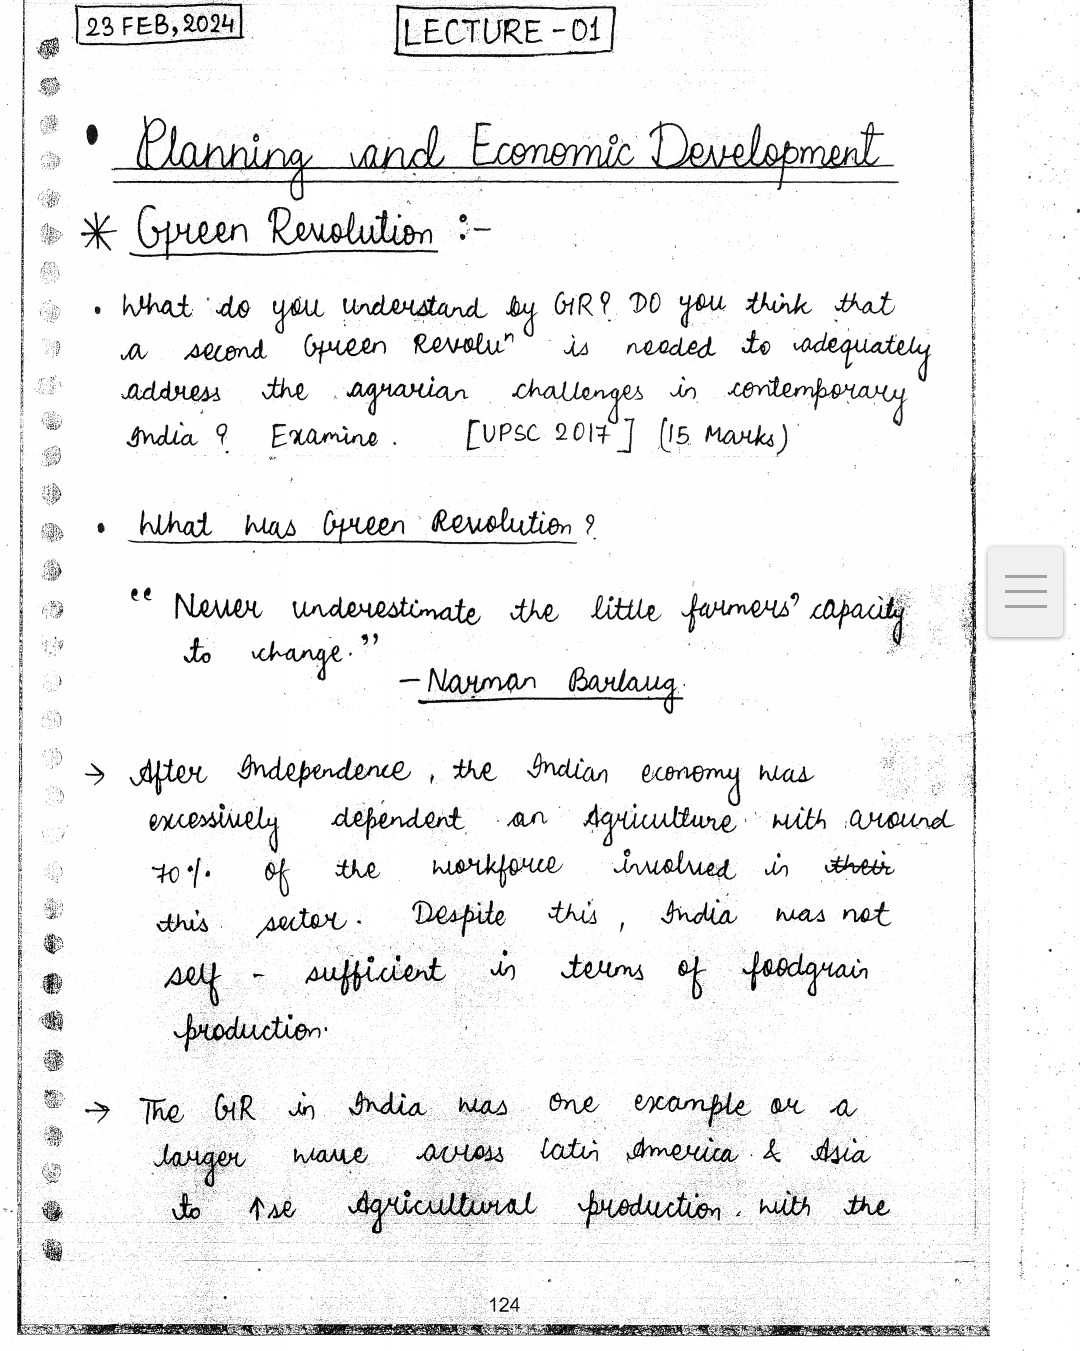 23 FEB, 2024
LECTURE - 01
• Planning and Economic Development
* Green Revolution :-
• What do you understand by GR? DO you think that
a second Green Revoluⁿ is needed to adequately
address the agrarian challenges in contemporary
India ? Examine . [UPSC 2017] (15 Marks)
• What was Green Revolution ?
" Never underestimate the little farmers' capacity
to change."
- Narman Barlaug
→ After Independence, the Indian economy was
excessively dependent on Agriculture with around
70% of the workforce involved in their
this sector. Despite this, India was not
self - sufficient in terms of foodgrain
production.
→ The GR in India was one example or a
larger wave across Latin America & Asia
to ↑se Agricultural production. with the
124